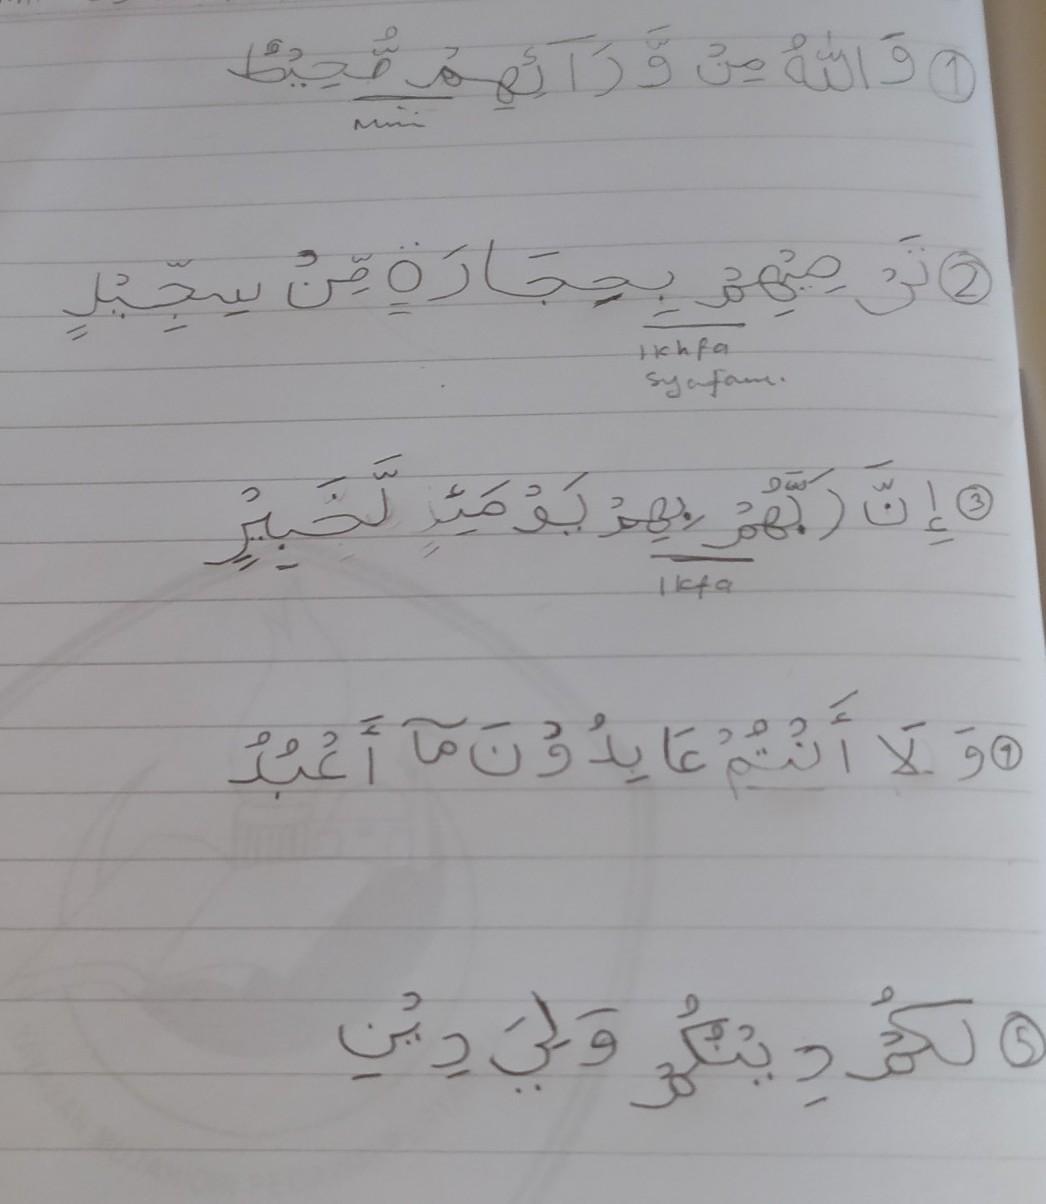 ① وَاللّٰهُ مِنْ وَّرَآئِهِمْ مُّحِيْطٌ
Mimi
② تَرْ مِيْهِمْ بِحِجَارَةٍ مِّنْ سِجِّيْلٍ
Ikhfa
Syafawi.
③ إِنَّ رَبَّهُمْ بِهِمْ يَوْمَئِذٍ لَّخَبِيْرٌ
Ikfa
④ وَلَا أَنْتُمْ عَابِدُوْنَ مَآ أَعْبُدُ
⑤ لَكُمْ دِيْنُكُمْ وَلِيَ دِيْنِ